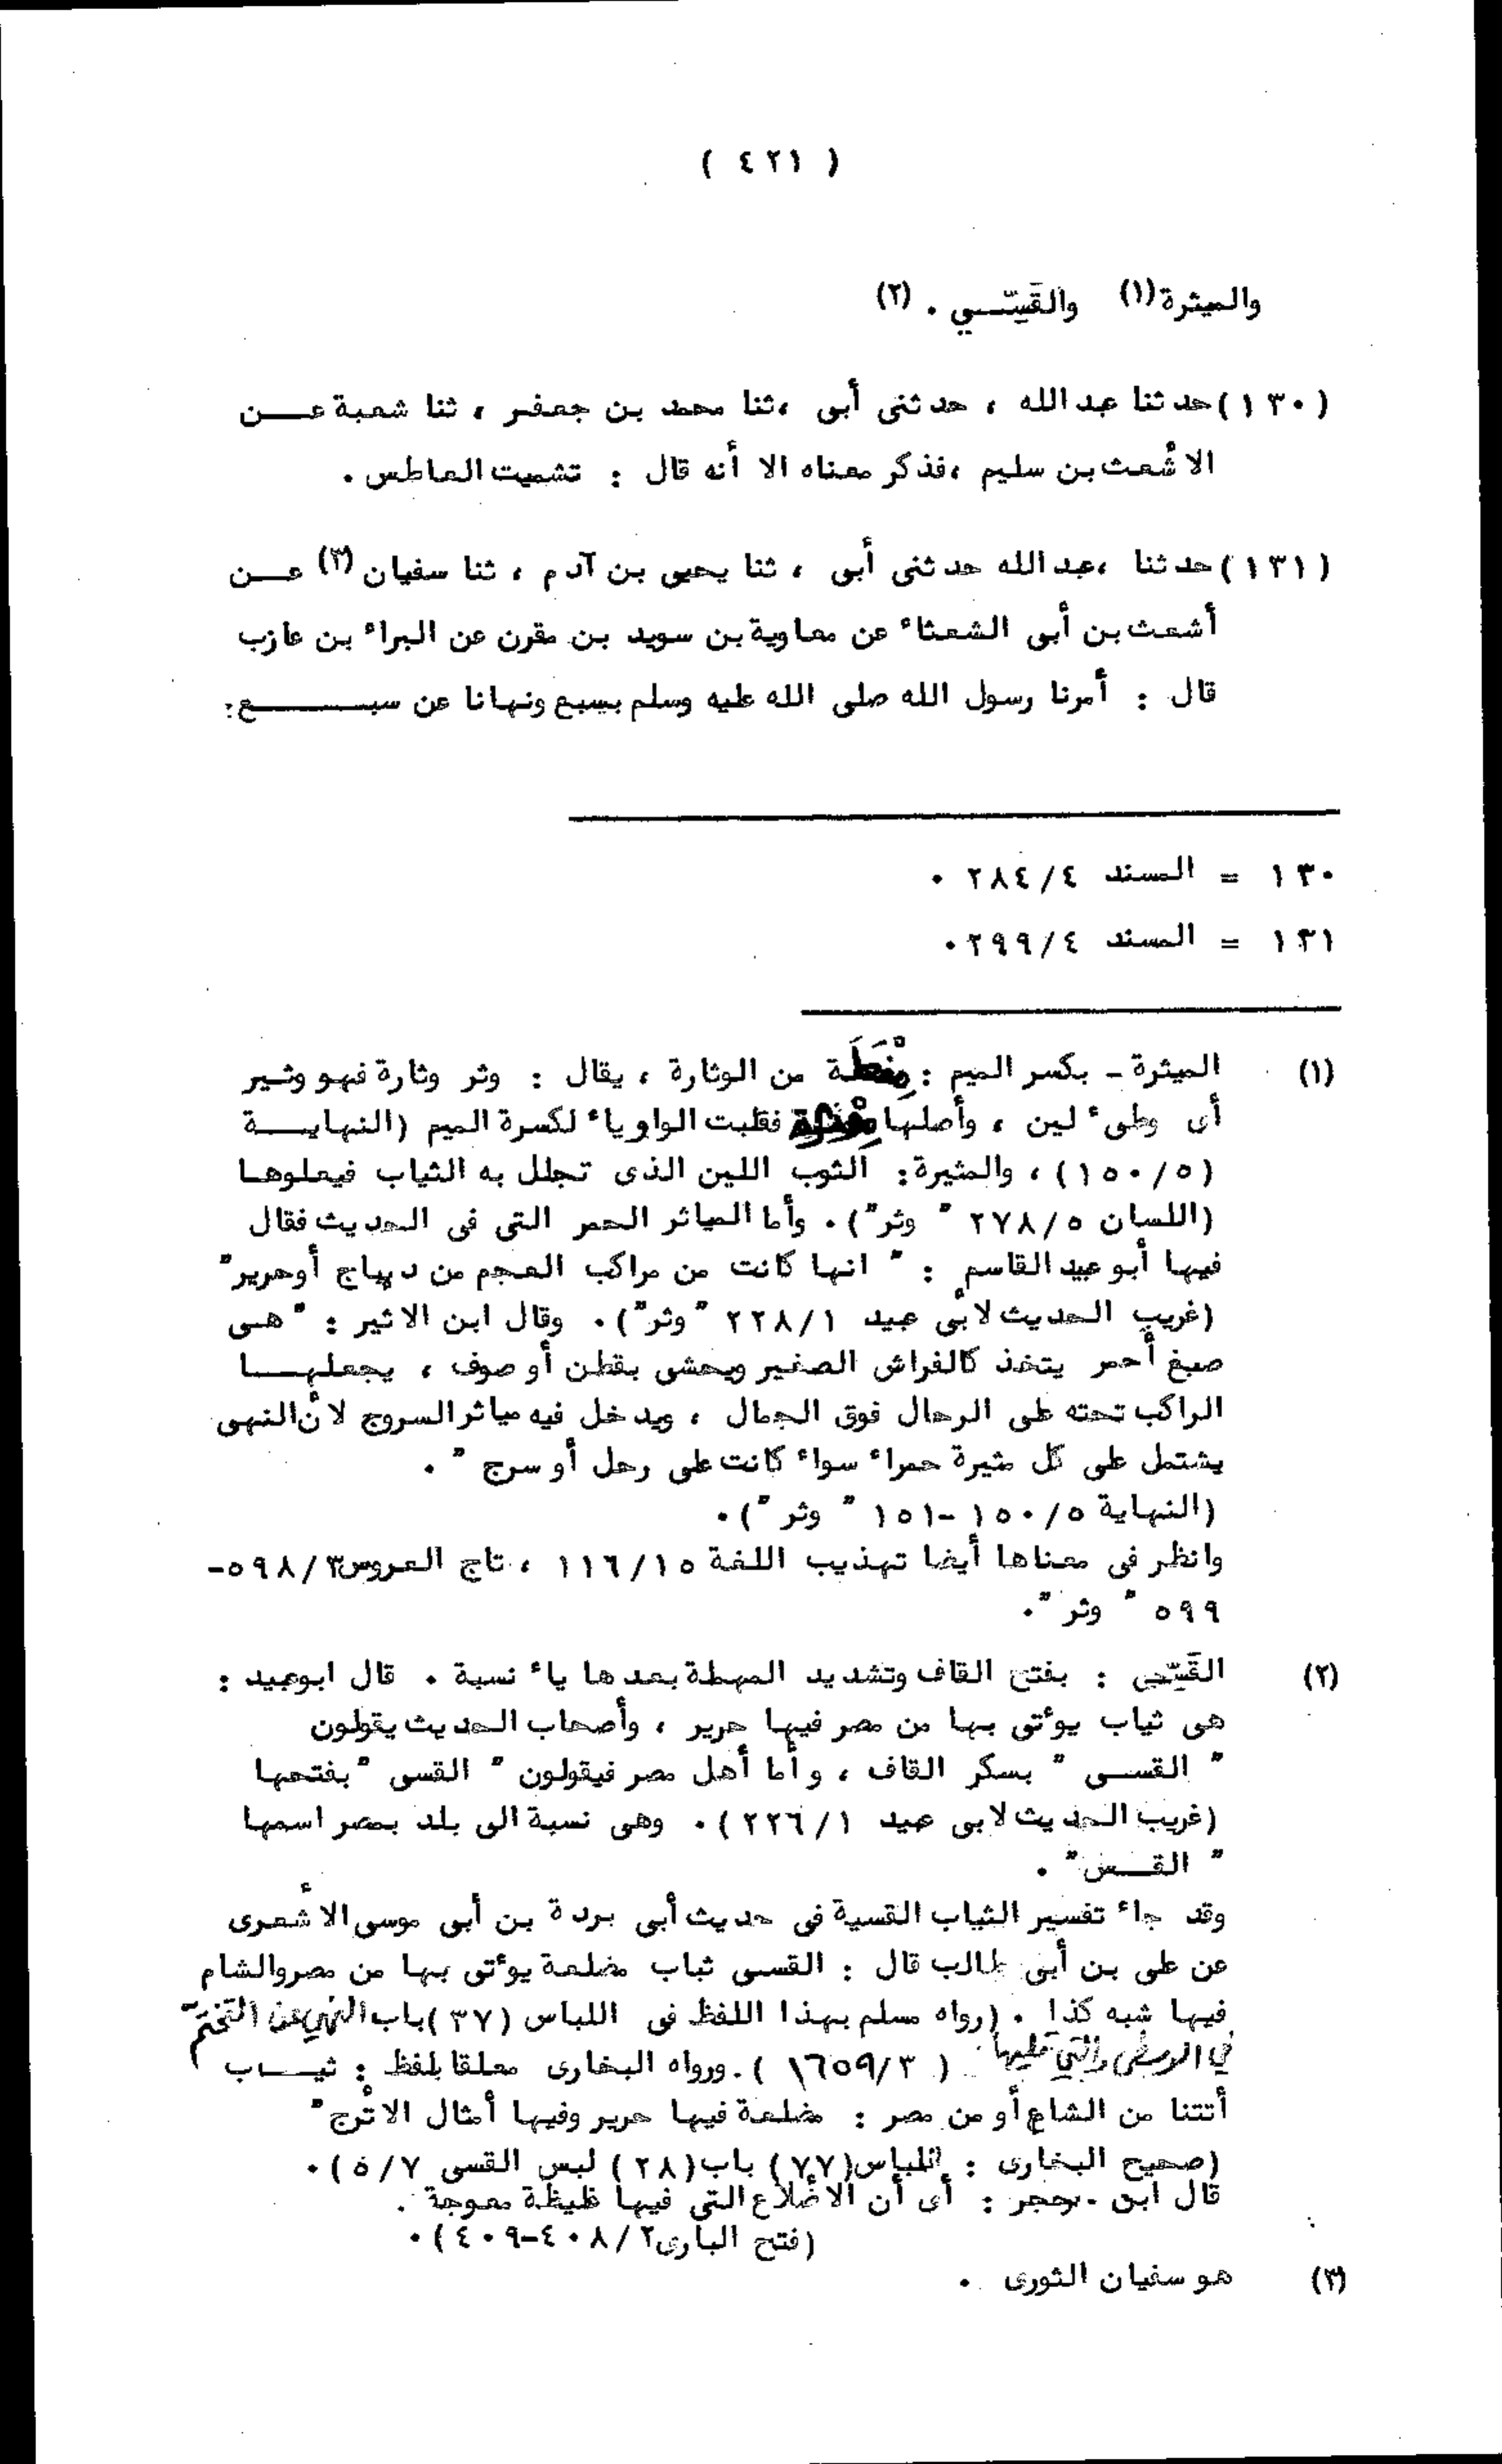 ( ٤٢١ )
والميثرة (١) والقَسِّي . (٢)
(١٣٠) حدثنا عبدالله ، حدثنى أبى ،ثنا محمد بن جعفر ، ثنا شعبة عن
الاشْعث بن سليم ،فذكر معناه الا أنه قال : تشميت العاطس .
(١٣١) حدثنا ،عبدالله حدثنى أبى ، ثنا يحيى بن آدم ، ثنا سفيان (٣) عن
أشعث بن أبى الشعثاء عن معاوية بن سويد بن مقرن عن البراء بن عازب
قال : أمرنا رسول الله صلى الله عليه وسلم بسبع ونهانا عن سبع:
١٣٠ = المسند ٢٨٤/٤ .
١٣١ = المسند ٢٩٩/٤.
(١) الميثرة - بكسر الميم : مِفْعَلَة من الوثارة ، يقال : وثر وثارة فهو وثير
أى وطىء لين ، وأصلها مِوْثرة فقلبت الواو ياء لكسرة الميم (النهاية
(١٥٠/٥) ، والمثيرة: الثوب اللين الذى تجلل به الثياب فيعلوها
(اللسان ٢٧٨/٥ " وثر"). وأما المياثر الحمر التى فى الحديث فقال
فيها أبو عبيد القاسم : " انها كانت من مراكب العجم من ديباج أو حرير"
(غريب الحديث لابْى عبيد ٢٢٨/١ "وثر"). وقال ابن الاثير : "هى
صبغ أحمر يتخذ كالفراش الصغير ويحشى بقطن أو صوف ، يجعلها
الراكب تحته على الرحال فوق الجمال ، ويدخل فيه مياثر السروج لانْ النهى
يشتمل على كل مثيرة حمراء سواء كانت على رحل أو سرج " .
(النهاية ١٥٠/٥-١٥١ " وثر ").
وانظر فى معناها أيضا تهذيب اللغة ١١٦/١٥ ، تاج العروس ٥٩٨/٣-
٥٩٩ " وثر ".
(٢) القَسِّى : بفتح القاف وتشديد المهملة بعدها ياء نسبة . قال ابوعبيد :
هى ثياب يوءتى بها من مصر فيها حرير ، وأصحاب الحديث يقولون
" القسى " بسكر القاف ، وأما أهل مصر فيقولون " القسى " بفتحها
(غريب الحديث لابى عبيد ٢٢٦/١) . وهى نسبة الى بلد بمصر اسمها
" القس" .
وقد جاء تفسير الثياب القسية فى حديث أبى بردة بن أبى موسى الاشْعرى
عن على بن أبى طالب قال : القسى ثياب مضلعة يوءتى بها من مصر والشام
فيها شبه كذا . (رواه مسلم بهذا اللفظ فى اللباس (٣٧) باب النهي عن التختّم
في الوسطى والتي تليها (١٦٥٩/٣). ورواه البخارى معلقا بلفظ : ثياب
أتتنا من الشام أو من مصر : مضلعة فيها حرير وفيها أمثال الاتْرج"
(صحيح البخارى : اللباس (٧٧) باب (٢٨) لبس القسى ٥/٧) .
قال ابن حجر : أى أن الاضْلاع التى فيها غليظة معوجة .
(فتح البارى ٤٠٨/٢-٤٠٩) .
(٣) هو سفيان الثورى .